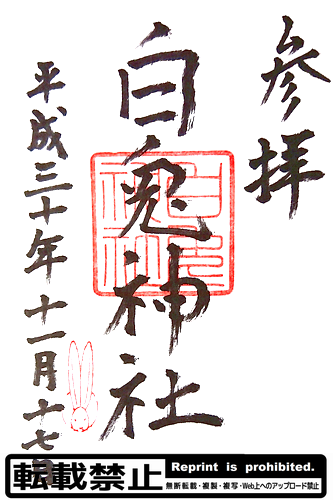 参拝
白兎神社
平成三十年十一月十七日
転載禁止
Reprint is prohibited.
無断転載・複製・複写・Web上へのアップロード禁止